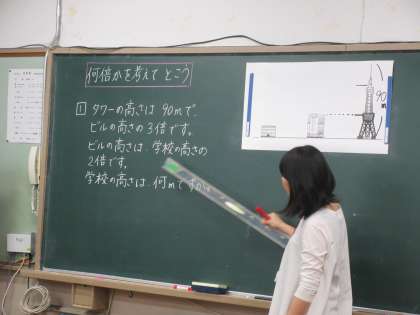 何倍かを考えてとこう
1 タワーの高さは 90mで、
ビルの高さの3倍です。
ビルの高さは、学校の高さの
2倍です。
学校の高さは、何mですか。
90m